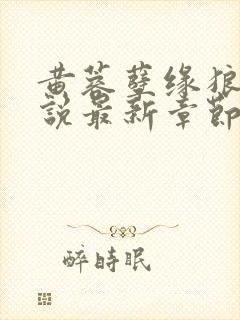 黄蓉孽缘狼
說最新章節
醉時眠